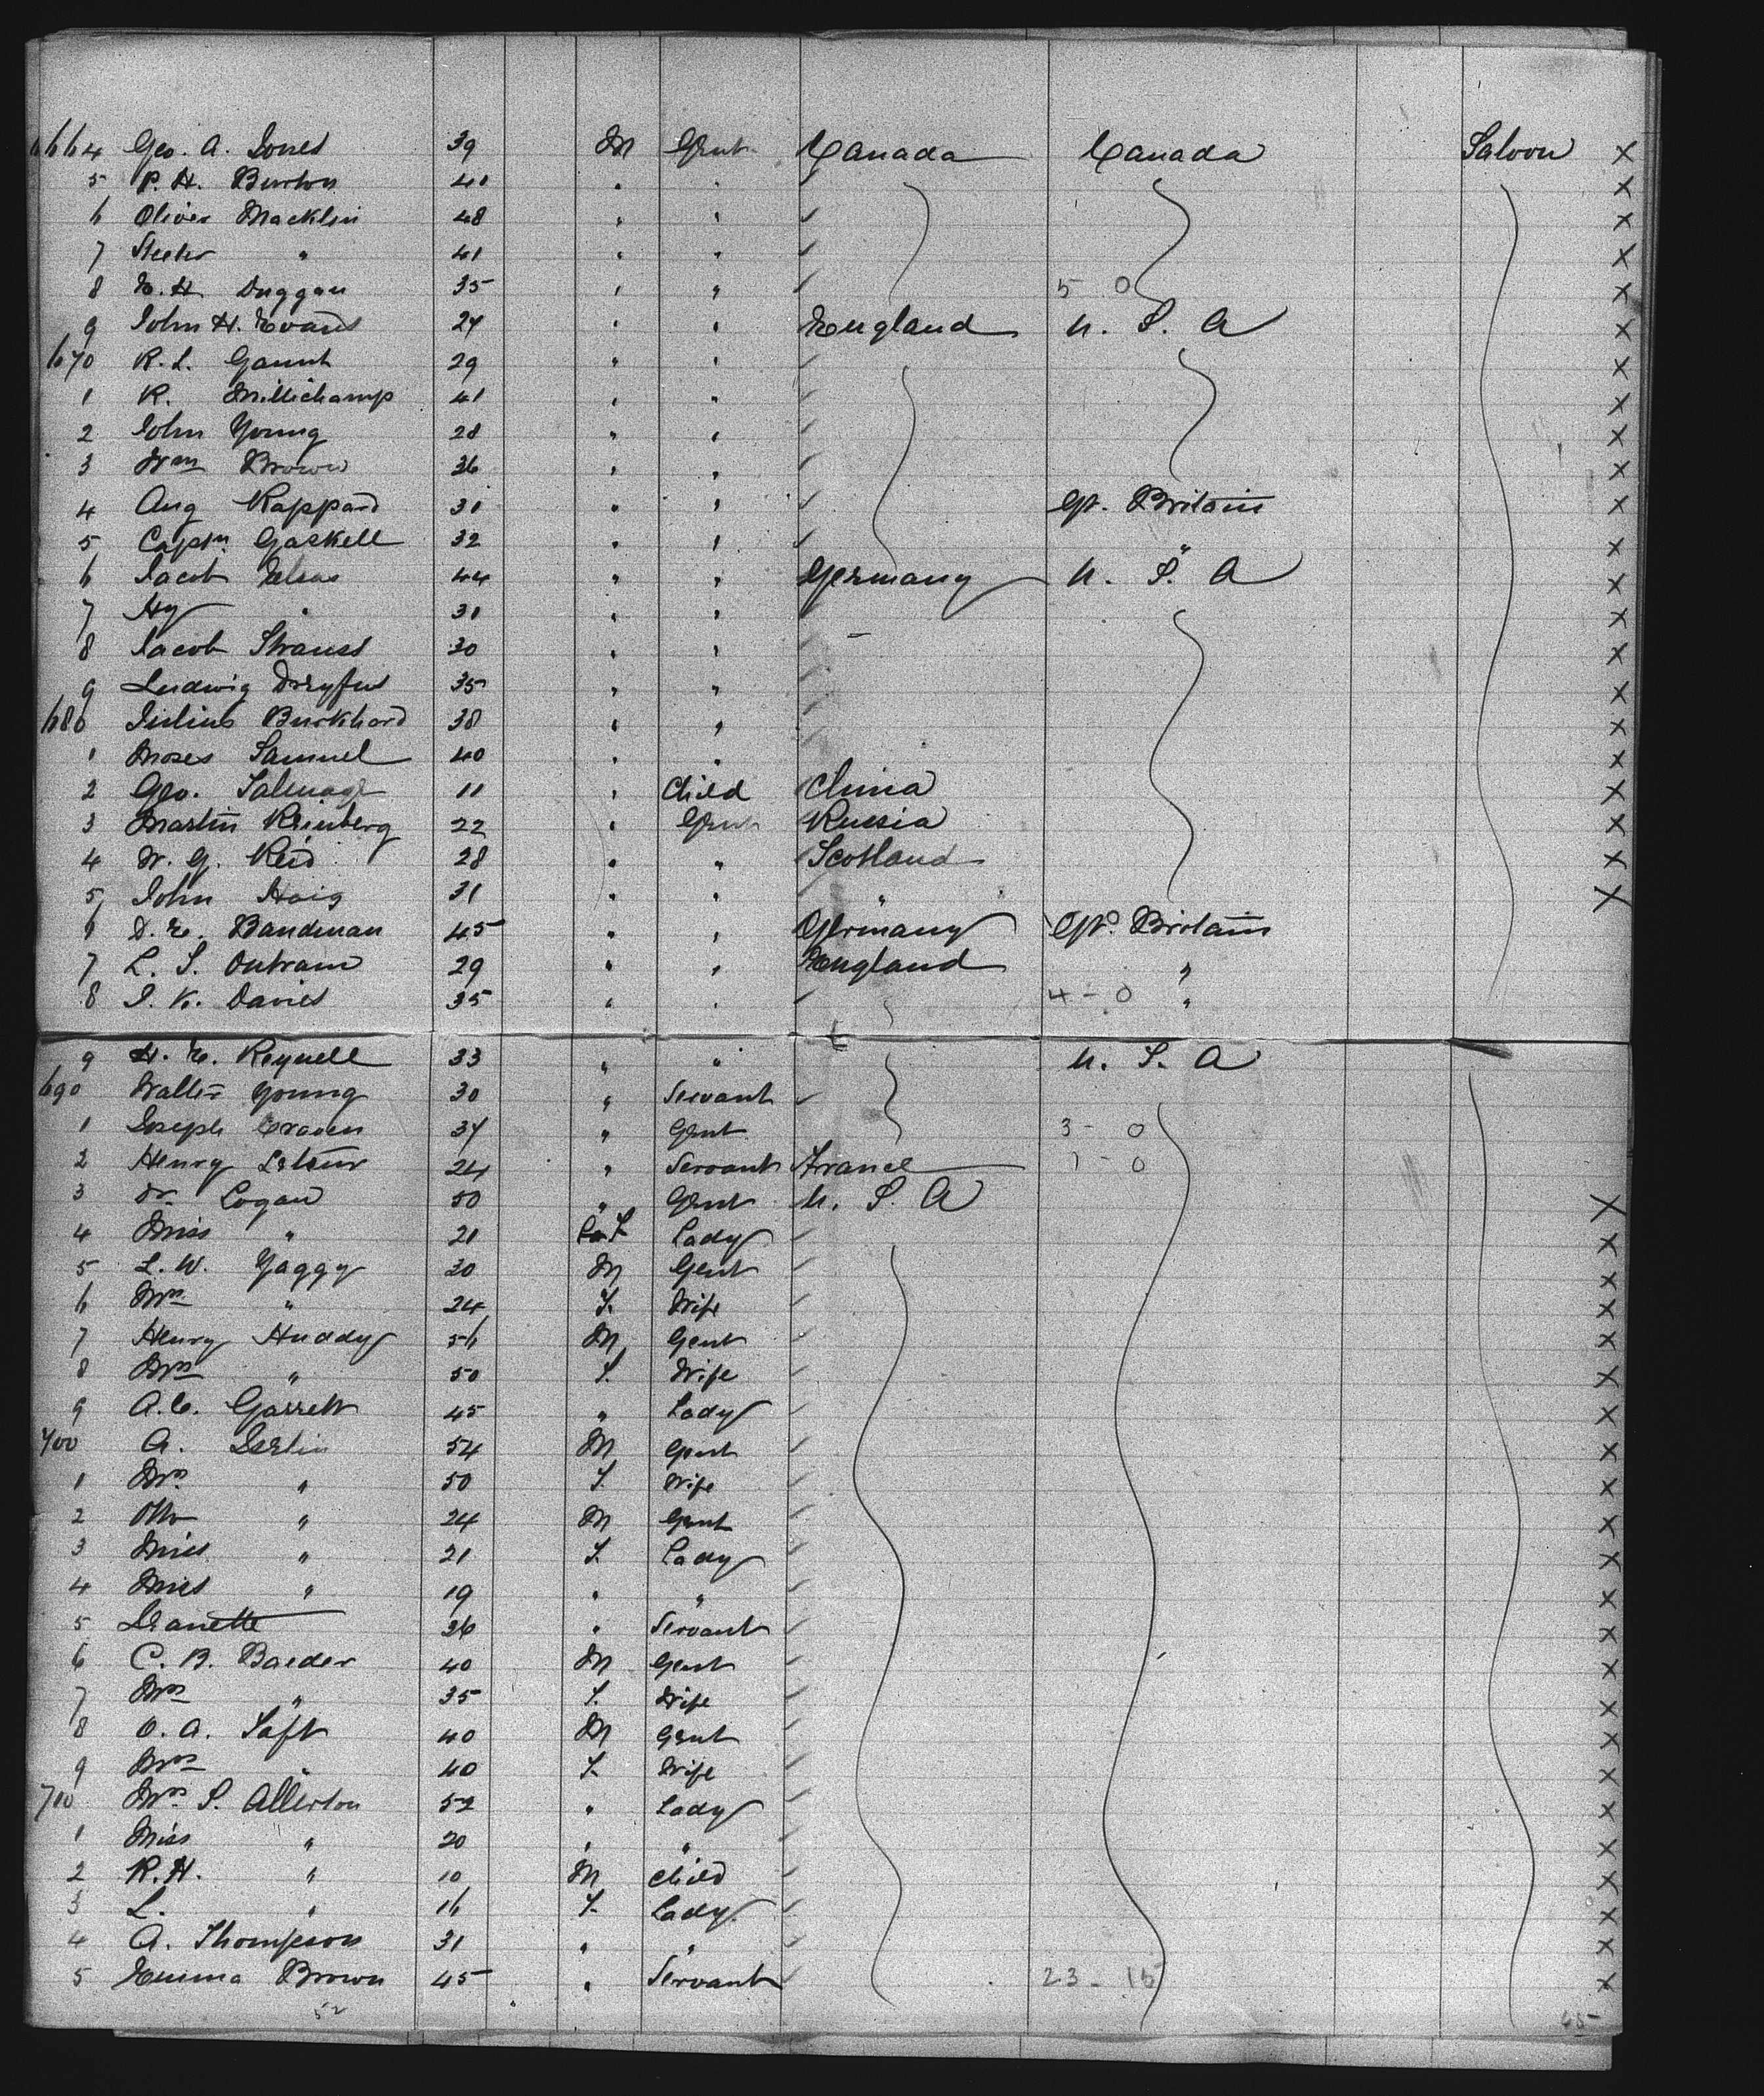 664 Geo. A. Jones 39 M Gent Canada Canada Saloon X
5 P. H. Burton 41 " " X
6 Oliver Macklin 48 " " X
7 " 41 " " X
8 E. H. Duggan 35 " " 5 0 X
9 John H. Evans 27 " " England U. S. A X
670 R. L. Gaunt 29 " " X
1 R. Millichamp 41 " " X
2 John Young 28 " " X
3 Wm Brown 36 " " X
4 Aug Rappard 31 " " Gt. Britain X
5 Captn Gaskell 32 " " " X
6 Jacob Elsas 44 " " Germany U. S. A X
7 Hy " 31 " " X
8 Jacob Strauss 30 " " X
9 Ludwig Dreyfus 35 " " X
680 Julius Burkhard 38 " " X
1 Moses Samuel 40 " " X
2 Geo. Talmage 11 " Child China X
3 Martin Reinberg 22 " Gent Russia X
4 W. G. Reid 28 " " Scotland X
5 John Haig 31 " " " X
6 D. E. Bandman 45 " " Germany Gt. Britain
7 L. S. Outram 29 " " England "
8 J. K. Davies 35 " " 4 - 0 "
9 H. E. Reynell 33 " " U. S. A
690 Walter Young 30 " Servant
1 Joseph Craven 37 " Gent 3 - 0
2 Henry 24 " Servant France 1 - 0
3 Dr. Logan 50 " Gent U. S. A X
4 Miss " 21 F Lady X
5 L. W. Yaggy 30 M Gent X
6 Mrs " 24 F. Wife X
7 Henry Huddy 56 M Gent X
8 Mrs " 50 F. Wife X
9 A. C. Garrett 45 " Lady X
700 A. 54 M Gent X
1 Mrs " 50 F. Wife X
2 Otto " 24 M Gent X
3 Miss " 21 F. Lady X
4 Miss " 19 " " X
5 Jeanette 26 " Servant X
6 C. B. Baeder 40 M Gent X
7 Mrs " 35 F. Wife X
8 O. A. Taft 40 M Gent X
9 Mrs " 40 F. Wife X
710 Mrs S. Allerton 52 " Lady X
1 Miss " 20 " " X
2 R. H. " 10 M Child X
3 L. " 16 F. Lady X
4 A. Thompson 31 " " X
5 Emma Brown 45 " Servant 23 - 15 X
52